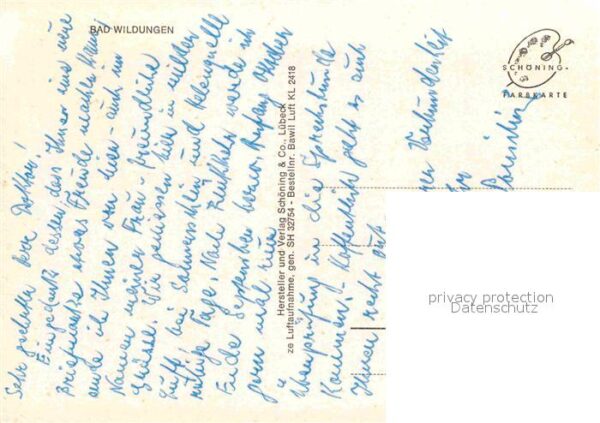 BAD WILDUNGEN
SCHÖNING
FARBKARTE
Hersteller und Verlag Schöning & Co., Lübeck
ze Luftaufnahme, gen. SH 32754 - Bestellnr. Bawil Luft KL 2418
Sehr geehrter Herr Doktor,
Eingedenk dessen, das Ihnen eine neue
Briefmarke etwas Freude machen kann
sende ich Ihnen von hier - auch im
Namen meiner Frau - freundliche
Grüsse. Wir geniessen hier in milder
Luft bei Sonnenschein und
ruhige Tage. Nach Rückkehr werde ich
Ende September bezw. Anfang Oktober
gern mal zur
Überprüfung in die Sprechstunde
kommen. - Hoffentlich geht es auch
Ihnen recht gut.
Verbundenheit
Ihr
privacy protection
Datenschutz